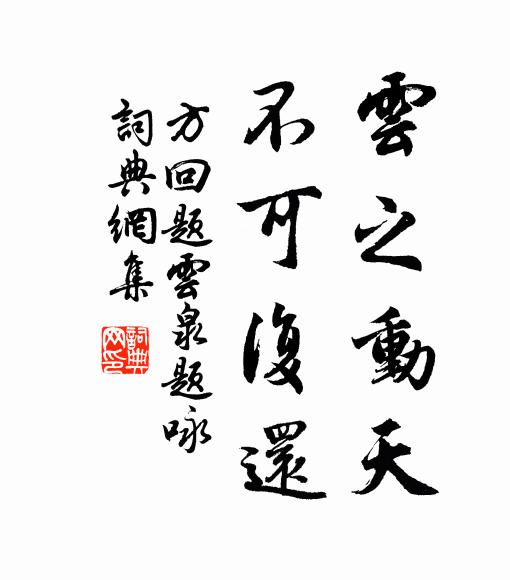 雲之動天
不可復還
方回題雲泉題咏
詞典網集
詞典
网印